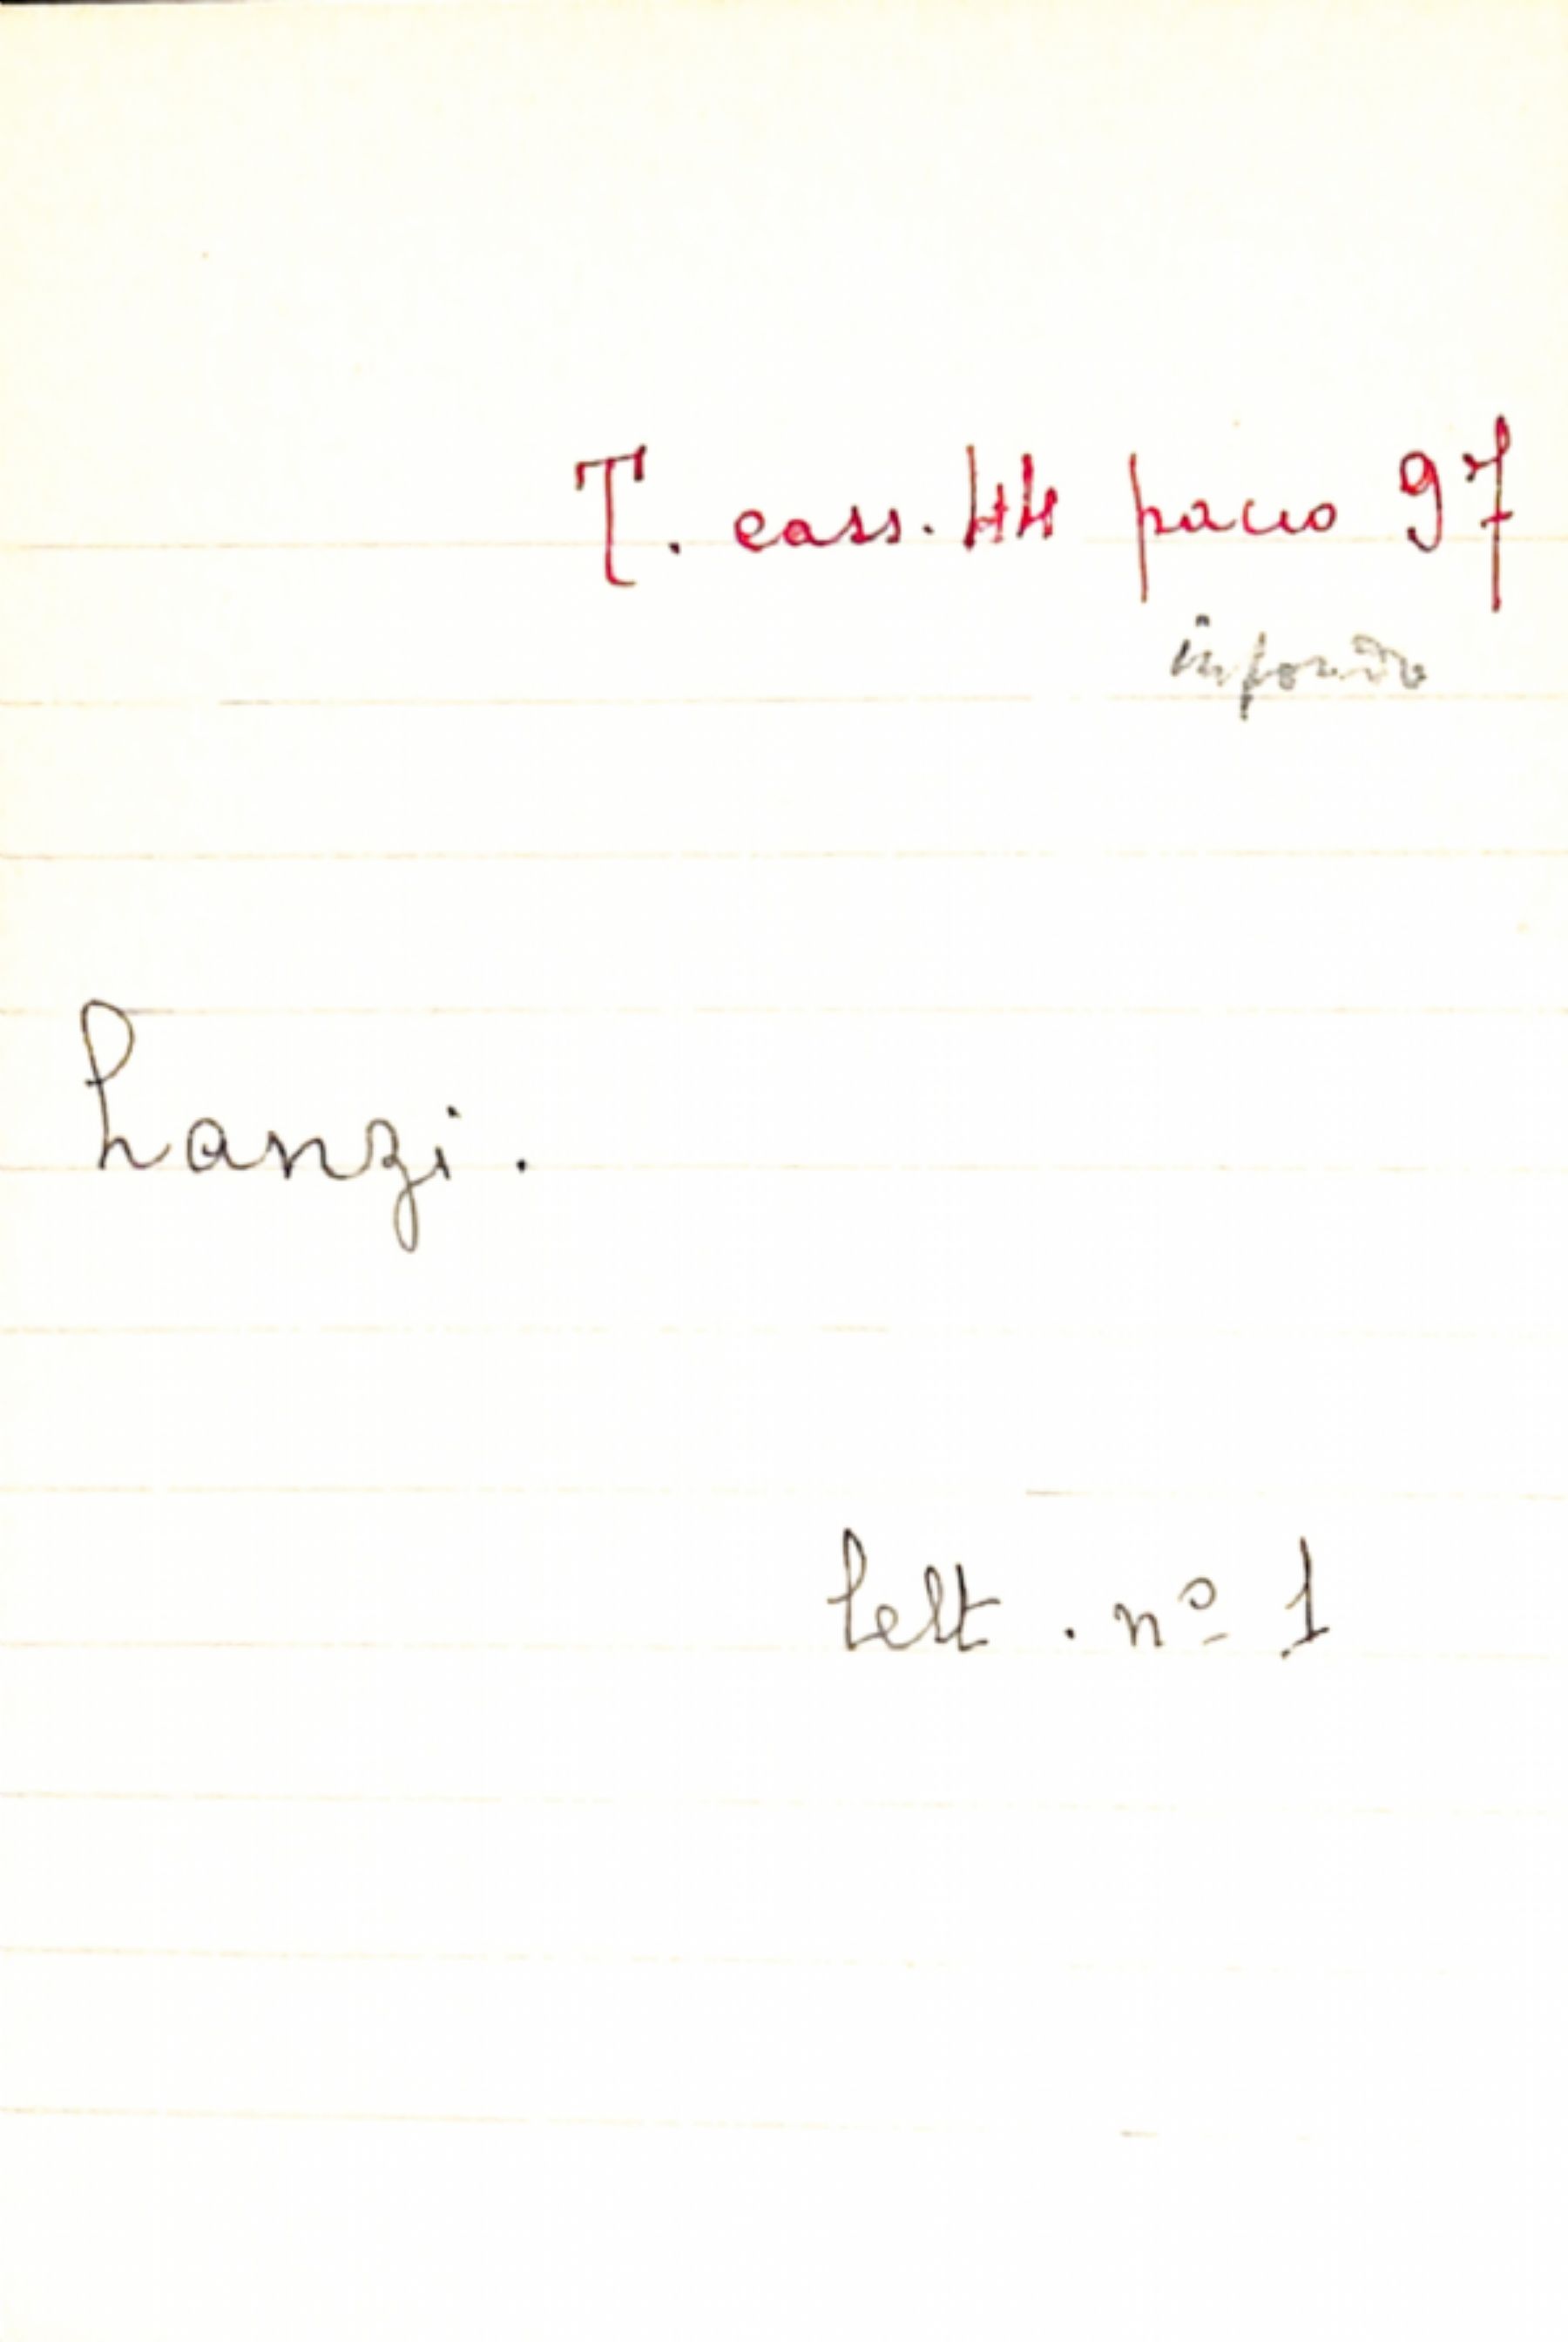 T. cass. 44 pacco 97
in fondo
Lanzi.
lett. nº 1